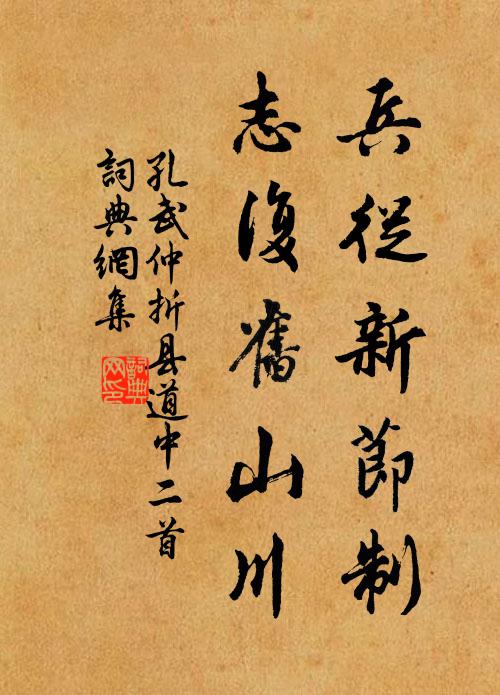 兵從新節制
志復舊山川
孔武仲折县道中二首
詞典網集
詞典網印